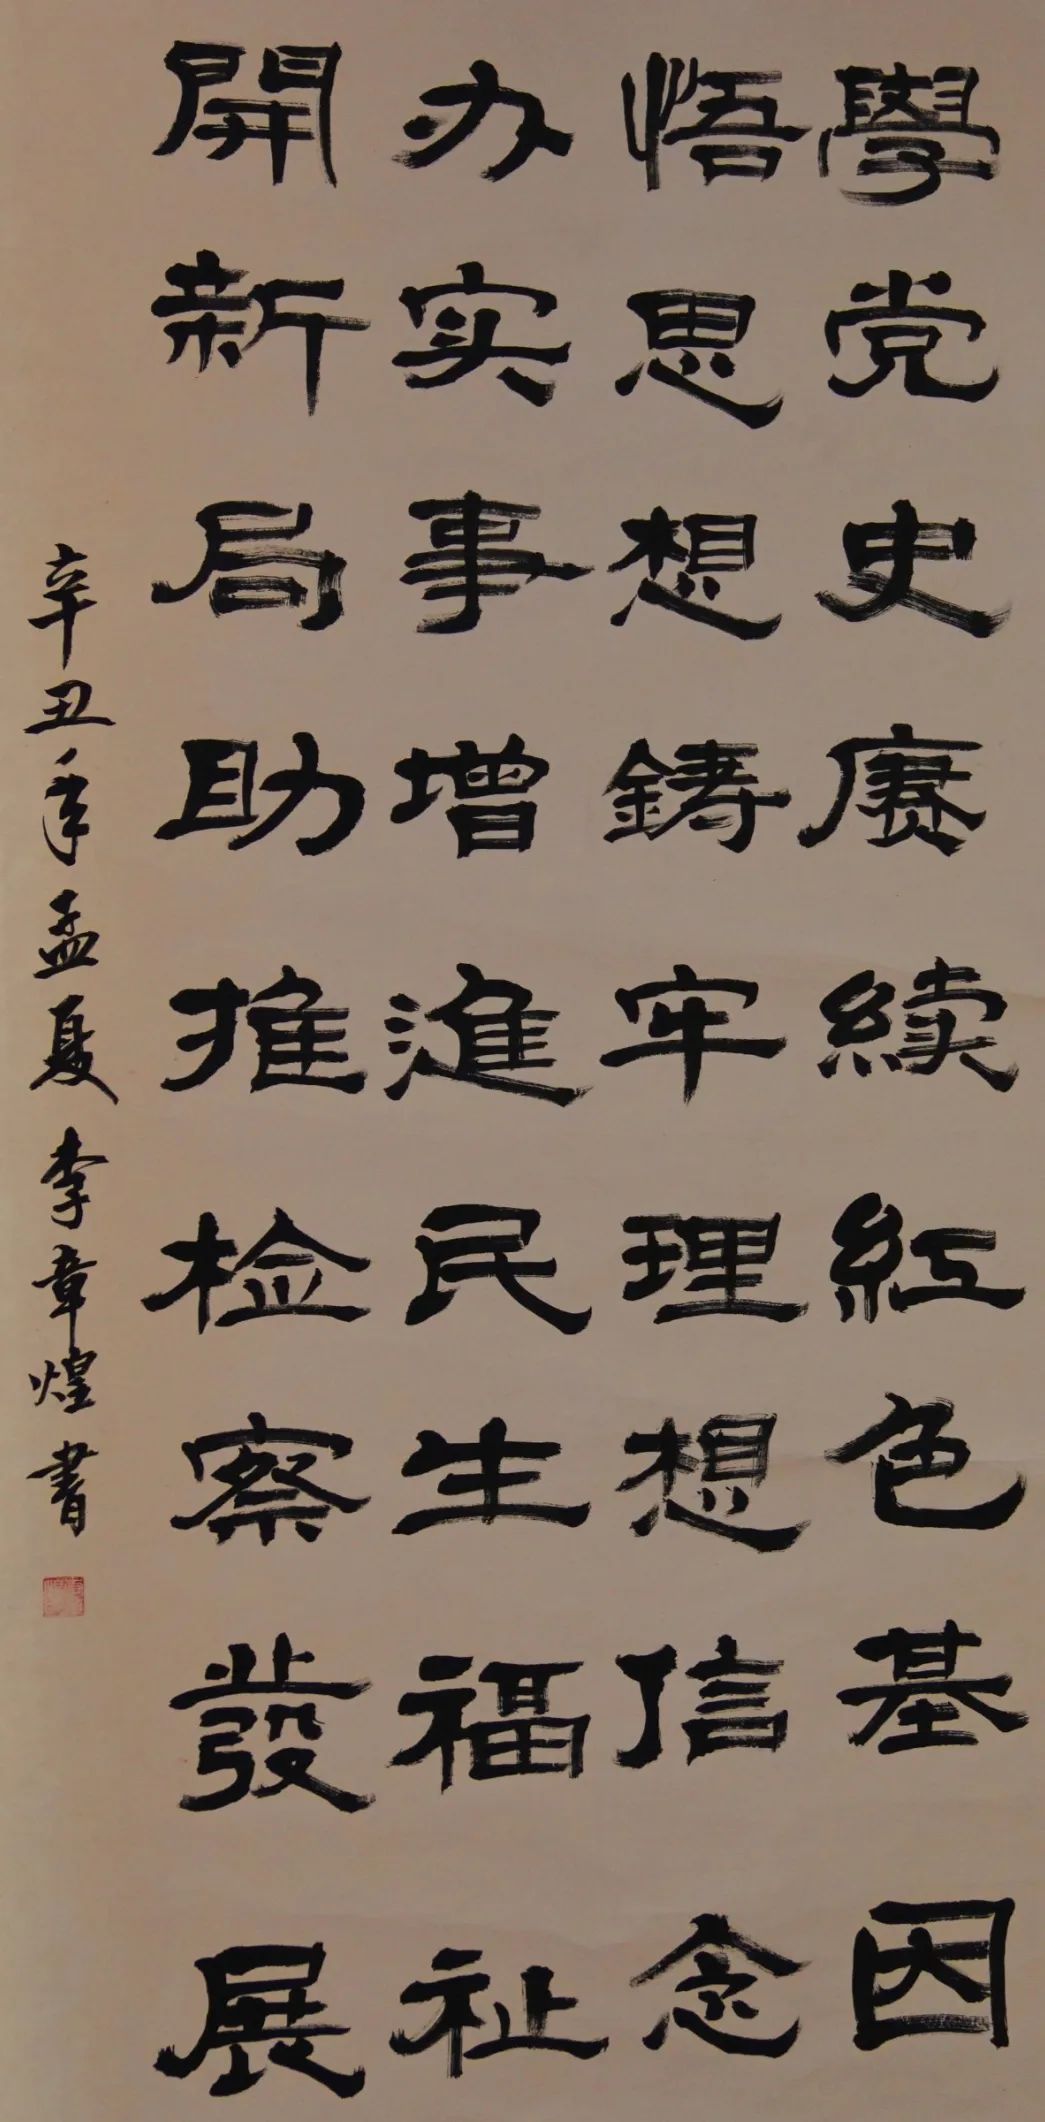 學党史赓續紅色基因
悟思想鑄牢理想信念
办实事增進民生福祉
開新局助推检察發展
辛丑年孟夏李章煌書